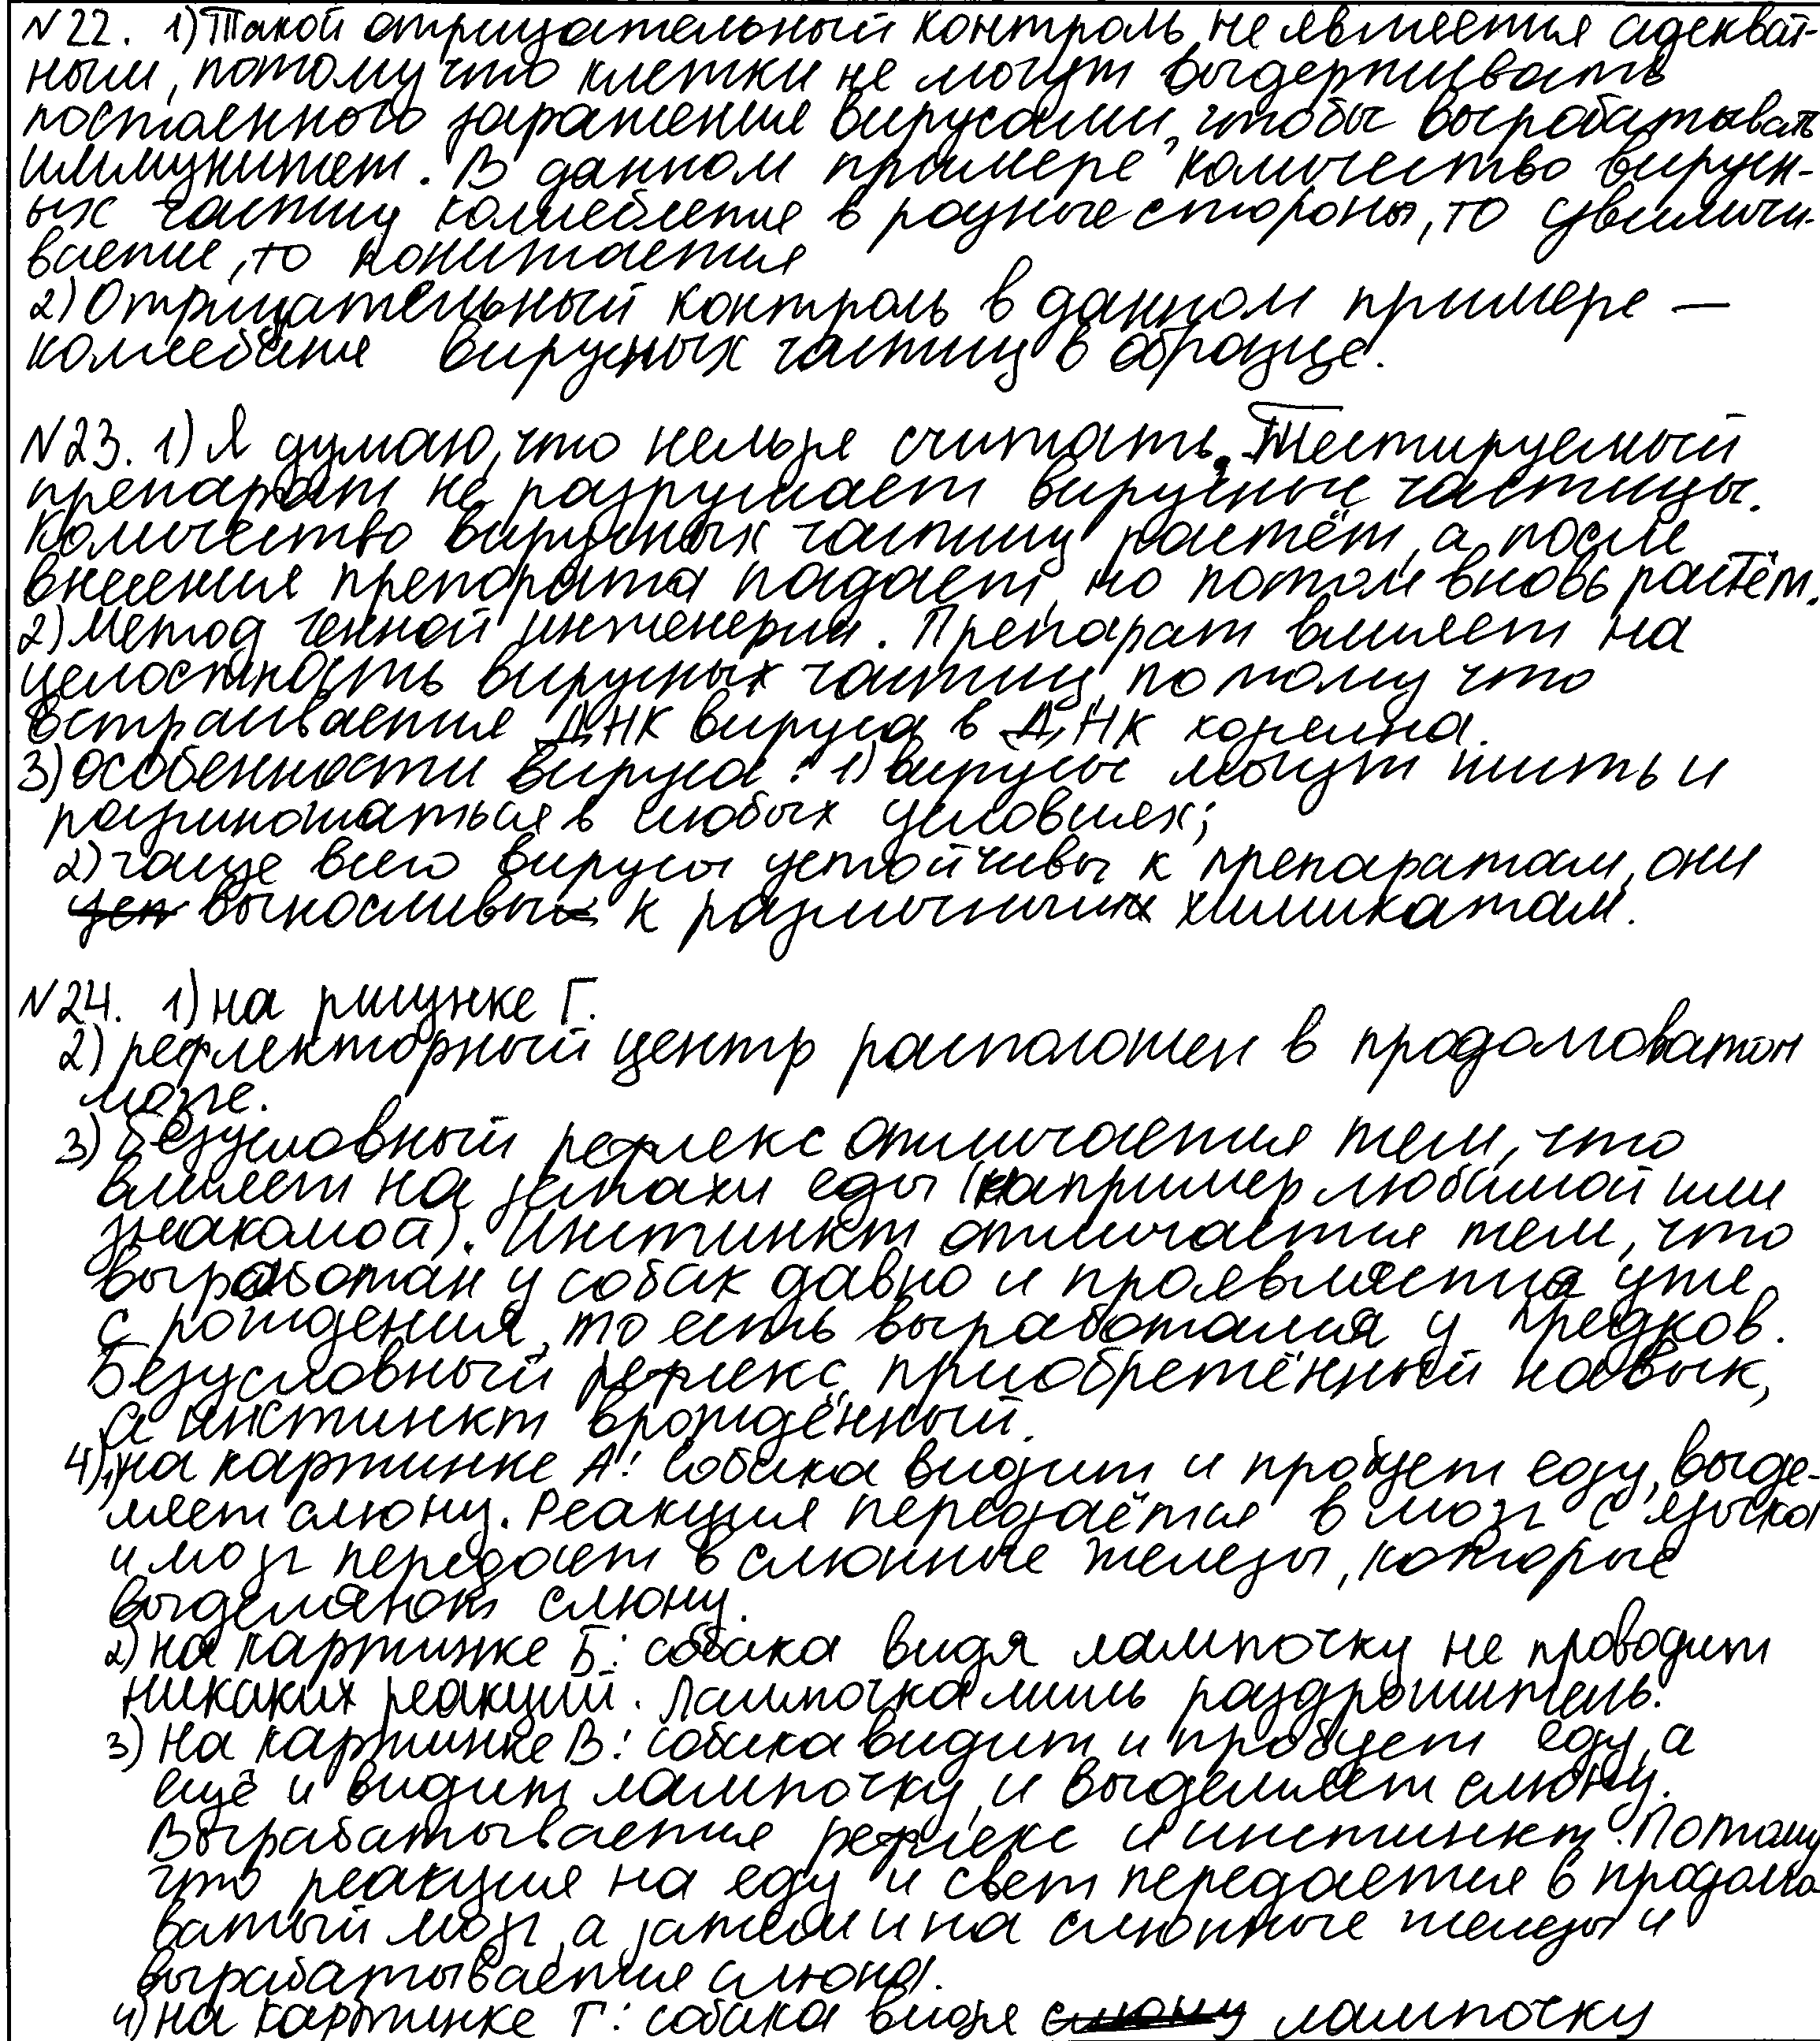 №22. 1) Такой отрицательный контроль не является адекват-
ным, потому что клетки не могут выдерживать
постоенного заражение вирусами, чтобы вырабатывать
иммунитет. В данном примере количество вирусн-
ых частиц колеблется в разные стороны, то увеличи-
вается, то понижается
2) Отрицательный контроль в данном примере —
колеебание вирусных частиц в образце.
№23. 1) Я думаю, что нельзя считать. Тестируемый
препарат не разрушает вирусные частицы.
Количество вирусных частиц растёт, а после
внесения препарата падает, но потом вновь растёт.
2) Метод генной инженерии. Препарат влияет на
целостность вирусных частиц, потому что
встраивается ДНК вируса в ДНК хозяина.
3) Особенности вируса: 1) вирусы могут жить и
размножаться в любых условиях;
2) чаще всего вирусы устойчивы к препаратам, они
выносливы к различным химикатам.
№24. 1) на рисунке Г.
2) рефлекторный центр расположен в продолговатом
мозге.
3) Безусловный рефлекс отличается тем, что
влияет на запахи еды (например любимой или
знакомой). Инстинкт отличается тем, что
выработан у собак давно и проявляется уже
с рождения, то есть выработался у предков.
Безусловный рефлекс приобретённый навык,
а инстинкт врождённый.
4) 1) на картинке А: собака видит и пробует еду, выде-
ляет слюну. Реакция передаётся в мозг с языка
и мозг передает в слюнные железы, которые
выделяют слюну.
2) на картинке Б: собака видя лампочку не проводит
никаких реакций. Лампочка лишь раздрожитель.
3) на картинке В: собака видит и пробует еду, а
ещё и видит лампочку, и выделяет слюну.
Вырабатывается рефлекс и инстинкт. Потому
что реакция на еду и свет передается в продолго
ватый мозг, а затем и на слюнные железы и
вырабатывается слюна.
4) на картинке Г: собака видя слюну лампочку